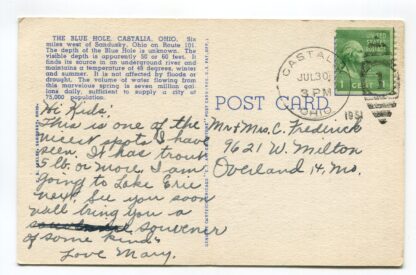 THE BLUE HOLE, CASTALIA, OHIO. Six
miles west of Sandusky, Ohio on Route 101.
The depth of the Blue Hole is unknown. The
visible depth is apparently 50 or 60 feet. It
finds its source in an underground river and
maintains a temperature of 48 degrees, winter
and summer. It is not affected by floods or
drought. The volume of water flowing from
this marvelous spring is seven million gal-
lons daily, sufficient to supply a city of
75,000 population.
Hi Kids,
This is one of the
nicest spots I have
seen. It has trout
5 lb. or more. I am
going to Lake Erie
next. See you soon
will bring you a
souvenir
of some kind"
Love Mary.
POST CARD
CASTALIA
JUL 30
3 PM
1951
OHIO
1 CENT 1
Mr & Mrs. C. Frederick
9621 W. Milton
Overland 14, Mo.